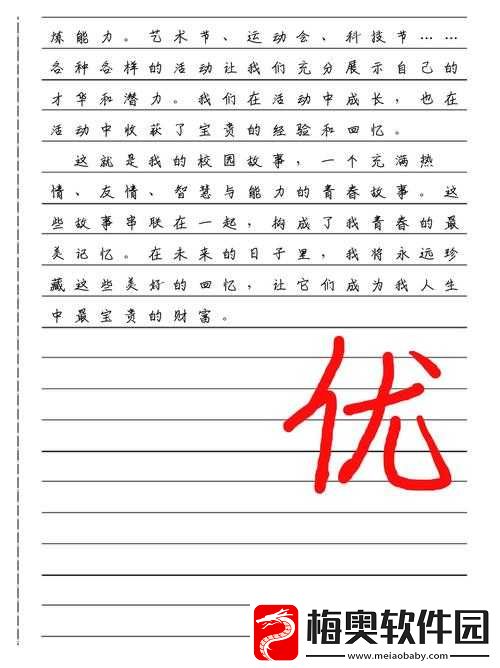 炼能力。艺术节、运动会、科技节……
各种各样的活动让我们充分展示自己的
才华和潜力。我们在活动中成长，也在
活动中收获了宝贵的经验和回忆。
这就是我的校园故事，一个充满热
情、友情、智慧与能力的青春故事。这
些故事串联在一起，构成了我青春的最
美记忆。在未来的日子里，我将永远珍
藏这些美好的回忆，让它们成为我人生
中最宝贵的财富。
优
梅奥软件园
www.meiaobaby.com